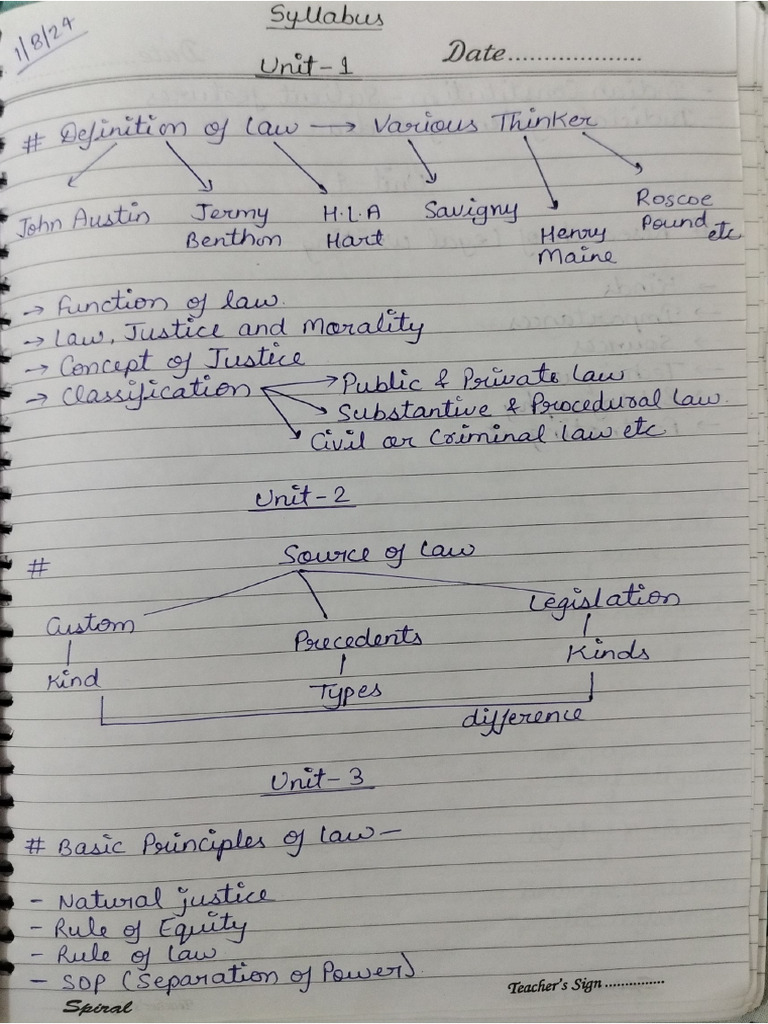 Syllabus
1/8/24
Unit-1
Date...................
# Definition of law → Various Thinker
John Austin
Jermy
Benthon
H.L.A
Hart
Savigny
Henry
Maine
Roscoe
Pound etc
→ Function of law.
→ Law, Justice and Morality
→ Concept of Justice
→ Classification → Public & Private Law
Substantive & Procedural Law.
Civil or Criminal law etc
Unit-2
# Source of law
Custom
Precedents
Legislation
Kind
Types
Kinds
difference
Unit-3
# Basic Principles of law —
- Natural justice
- Rule of Equity
- Rule of law
- SOP (Separation of Power).
Spiral
Teacher's Sign...............